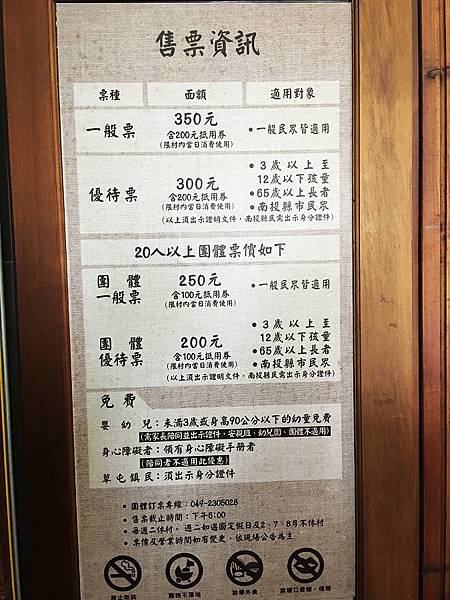 售票資訊
票種 面額 適用對象
一般票 350元 •一般民眾皆適用
含200元抵用券
(限村內當日消費使用)
優待票 300元
含200元抵用券
(限村內當日消費使用)
•3歲以上至
12歲以下孩童
•65歲以上長者
•南投縣市民眾
(以上須出示證明文件，南投縣民需出示身分證件)
20人以上團體票價如下
團體
一般票
250元
含100元抵用券
(限村內當日消費使用)
•一般民眾皆適用
團體
優待票
200元
含100元抵用券
(限村內當日消費使用)
•3歲以上至
12歲以下孩童
•65歲以上長者
•南投縣市民眾
(以上須出示證明文件，南投縣民需出示身分證件)
免費
嬰幼兒：未滿3歲或身高90公分以下的幼童免費
(需家長陪同並出示證件，安親班、幼兒園、團體不適用)
身心障礙者：領有身心障礙手冊者
(陪同者不適用此優惠)
草屯鎮民：須出示身分證件
•團體訂票專線：049-2305028
•售票截止時間：下午6:00
•每週二休村。週二如遇國定假日及2、7、8月不休村
•票價及營業時間如有變更，依現場公告為主
禁止吸菸 寵物不落地 禁帶外食 禁嚼口香糖、檳榔